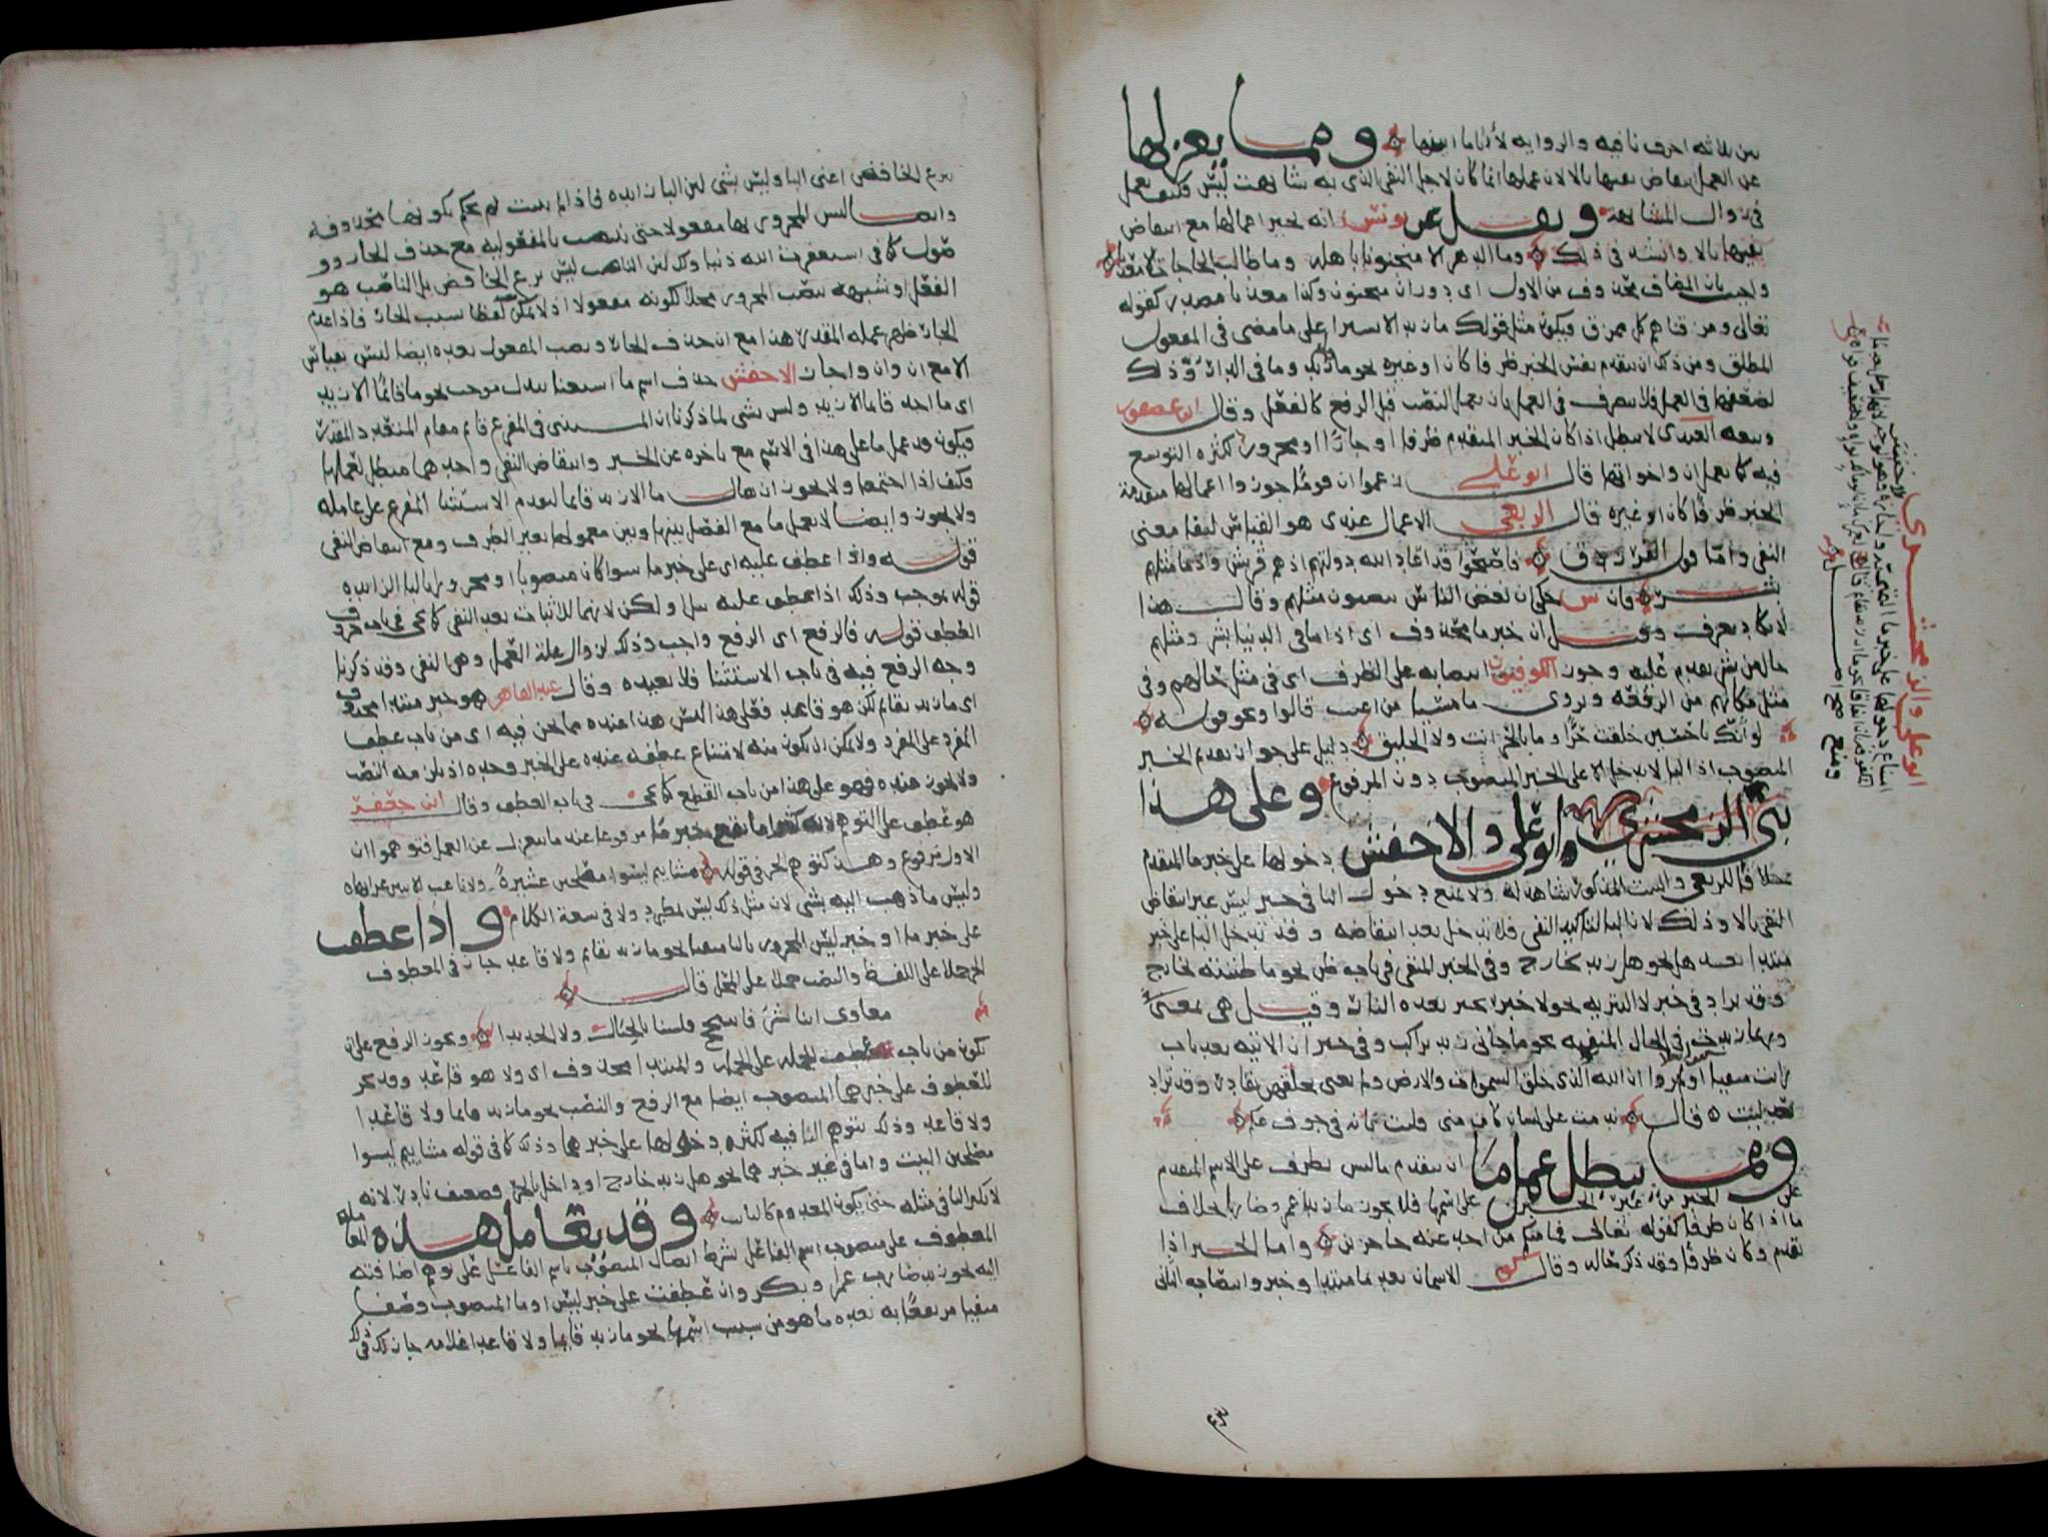 بين ثلاثه احرف نافيه والروايه لأن ما ابنها ومما يعزلها
عن العمل انتقاض نفيها بالا لان عملها انما كان لاجل النفي الذي به شابهت ليس وكيف تعمل
في زوال المشابهة ونقل عن يونس انه يجيز اعمالها مع انتقاض
نفيها بالا وانشد في ذلك وما الدهر الا منجنونا باهله وما طالب الحاجات الا معذبا
واجيب بان المضاف محذوف من الاول اي دوران منجنون وكذا معذبا مصدر كقوله
تعالى ومزقناهم كل ممزق فيكون مثل قولك ما زيد الا سيرا على ما مضى في المفعول
المطلق ومن ذلك ان يتقدم نفس الخبر ظرفا كان او غيره نحو ما قائم زيد وما في الدار زيد وذلك
لضعفها في العمل فلا يتصرف في العمل بان يعمل النصب قبل الرفع كالفعل وقال ابن عصفور
وتبعه العبدي لا يبطل اذا كان الخبر المتقدم ظرفا او جارا او مجرورا لكثرة التوسع
فيه كما يعمل ان واخواتها قال ابو علي زعموا ان قوما جوزوا اعمالها متقدمة
الخبر ظرفا كان او غيره قال الربعي الاعمال عندي هو القياس لبقا معنى
النفي واما قول الفرزدق فاصبحوا قد اعاد الله دولتهم اذ هم قريش واذ ما مثلهم
بشر فان س حكى ان بعض الناس ينصبون مثلهم وقال هذا
لا يكاد يعرف وقيل ان خبر ما محذوف اي اذ ما في الدنيا بشر ومثلهم
حال من بشر تقدم عليه وجوز الكوفيون انتصابه على الظرف اي في مثل حالهم وفي
مثل مكانهم من الرفعة ويروى ما مسيئا من اعتب قالوا ونحو قوله
لو انك يا حسين خلقت حرا وما بالحر انت ولا الخليق دليل على جواز تقديم الخبر
المنصوب اذ البا لا تدخل الا على الخبر المنصوب دون المرفوع وعلى هذا
بنى الزمخشري وابو علي والاخفش دخولها على خبر ما المتقدم
خلافا للربعي والبيت المذكور شاهد له ولا يمنع دخول البا في خبر ليس غير انتقاض
النفي بالا وذلك لان البا لتاكيد النفي فلا تدخل بعد انتقاضه وقد تدخل البا على خبر
مبتدا بعد هل نحو هل زيد بخارج وفي الخبر المنفي في باب ظن نحو ما ظننته بخارج
وقد تزاد في خبر لا التبريه نحو لا خير بخير بعده النار وقيل هي بمعنى في
وربما زيدت في الحال المنفيه نحو ما جاني زيد براكب وفي خبر ان الاتيه بعد باب
رايت منفيا اولم يروا ان الله الذي خلق السموات والارض ولم يعي بخلقهن بقادر وقد تزاد
بعد ليت قال ندمت على لسان كان مني فليت بانه في جوف عكم
ومما يبطل عمل ما ان يتقدم ما ليس بظرف على الاسم المتقدم
على الخبر من غير الخبرين على اسمها فلا يجوز ما زيدا عمرو ضاربا بخلاف
ما اذا كان ظرفا كقوله تعالى فما منكم من احد عنه حاجزين واما الخبر اذا
تقدم وكان ظرفا وقد ذكر خاله وقال الاسمان بعد ما مبتدا وخبر وانتصاب الثاني
ابو علي والزمخشري
بنزع الخافض اعني البا وليس بشي لان البا زايده فاذا لم يثبت لم يحكم بكونها محذوفه
وايضا ليس المجرور بها مفعولا حتى ينتصب بالمفعوليه مع حذف الجار وو
صول كما في استغفرت الله ذنبا وكذلك لان الناصب ليس نزع الخافض بل الناصب هو
الفعل او شبهه ينصب المجرور محلا لكونه مفعولا اذ لا يمكن لفظا بسبب الجار فاذا عدم
الجار ظهر عمله المقدر هذا مع ان حذف الجار ونصب المفعول بعده ايضا ليس بقياس
الا مع ان وان واجاز الاخفش حذف اسم ما استغنا ببدل موجب نحو ما قائما الا زيد
اي ما احد قائما الا زيد وليس بشي لما ذكرنا ان المستثنى في المفرغ قائم مقام المتعدد المقدر
فيكون قد عمل ما على هذا في الاسم مع تاخره عن الخبر وانتقاض النفي واحدهما مبطل لعملها
فكيف اذا اجتمعا ولا يجوز ان يقال ما الا زيد قائما لتقدم الاستثنا المفرغ على عامله
ولا يجوز وايضا لا تعمل ما مع الفصل بينها وبين معمولها بغير الظرف ومع انتقاض النفي
قوله واذا عطف عليه اي على خبر ما سوا كان منصوبا او مجرورا بالبا الزايده
قوله بموجب وذلك اذا عطف عليه ببل او لكن لانهما للاثبات بعد النفي كما يجي في باب حروف
العطف قوله فالرفع اي الرفع واجب وذلك لزوال علة العمل وهي النفي وقد ذكرنا
وجه الرفع فيه في باب الاستثنا فلا نعيده وقال عبد القاهر هو خبر مبتدا محذوف
اي ما زيد بقائم لكن هو قاعد فعلى هذا ليس هذا عنده مما نحن فيه اي من باب عطف
المفرد على المفرد ولا يمكن ان يكون منه لامتناع عطفه عنده على الخبر وحده اذ يلزمه النصب
ولا يجوز عنده فهو على هذا من باب القطع كما يجي في باب العطف وقال ابن جعفر
هو عطف على التوهم لانه كثيرا ما يقع خبر ما مرفوعا عند ما ينعزل عن العمل فتوهموا ان
الاول مرفوع وهذا كتوهم الجر في قوله مشاييم ليسوا مصلحين عشيرة ولا ناعب الا ببين غرابها
وليس ما ذهب اليه بشي لان مثل ذلك ليس بمطرد ولا في سعة الكلام واذا عطف
على خبر ما او خبر ليس المجرور بالبا منفيا نحو ما زيد بقائم ولا قاعد جاز في المعطوف
الجر حملا على اللفظ والنصب حملا على المحل قال
معاوي اننا بشر فاسجح فلسنا بالجبال ولا الحديدا ويجوز الرفع على ان
تكون من باب عطف الجمله على الجمله والمبتدا محذوف اي ولا هو قاعد وقد يجر
المعطوف على خبرهما المنصوب ايضا مع الرفع والنصب نحو ما زيد قايما ولا قاعدا
ولا قاعد وذلك بتوهم البا فيه لكثرة دخولها على خبرهما وذلك كما في قوله مشاييم ليسوا
مصلحين البيت واما في غير خبرهما نحو هل زيد خارج او داخل بالجر فضعيف نادر لانه
لا تكثر البا في مثله حتى يكون المعدوم كالثابت وقد يعامل هذه المعاملة
المعطوف على منصوب اسم الفاعل بشرط اتصال المنصوب باسم الفاعل على توهم اضافته
اليه نحو زيد ضارب عمرا وبكر وان عطفت على خبر ليس او ما المنصوب وصفا
منفيا مرتفعا به بعده ما هو من سبب اسمها نحو ما زيد قايما ولا قاعدا غلامه جاز لك في ذلك